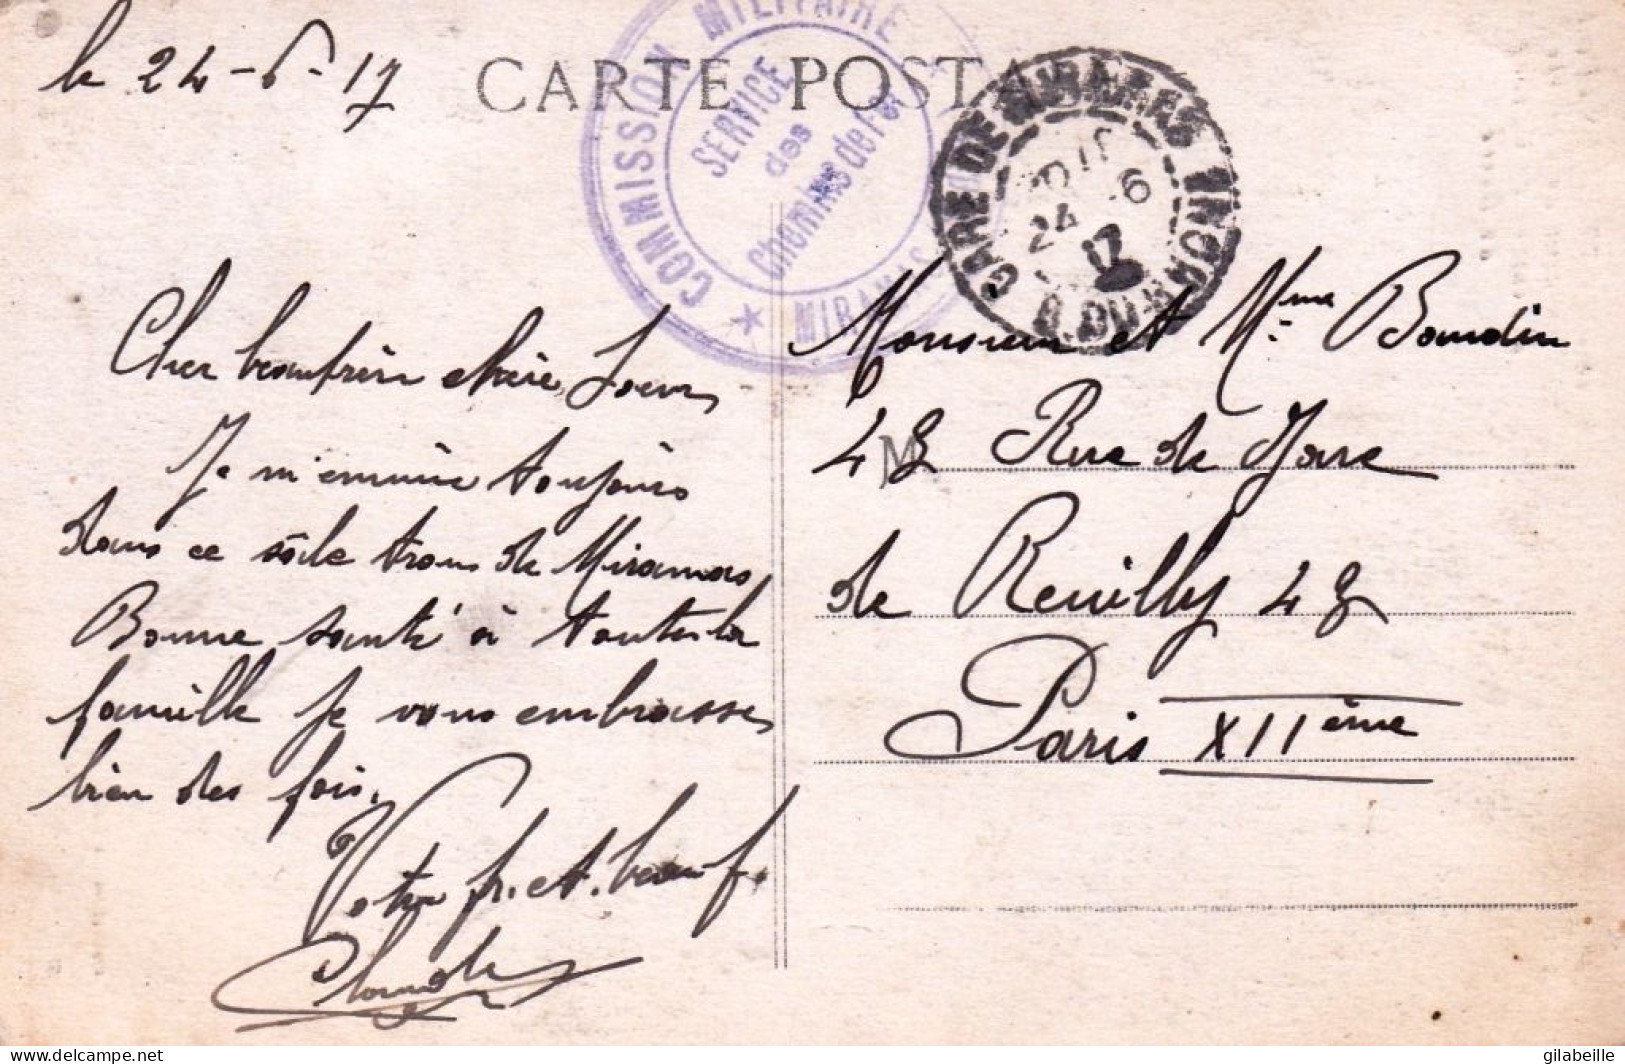 le 24-6-17
CARTE POSTA
COMMISSION MILITAIRE
SERVICE
des
Chemins de Fer
★ MIRAMAS
GARE DE MIRAMAS
24 -6
17
B. DU RHONE
Cher beaufrère chère Soeur
Je m'ennuie toujours
dans ce sâle trou de Miramas
Bonne santé à toute la
famille Je vous embrasse
bien des fois.
Votre fr. et. beauf.
Claude
Monsieur et Mme Boudin
48 Rue de Gare
de Reuilly 48
Paris XIIème
delcampe.net
gilabeille